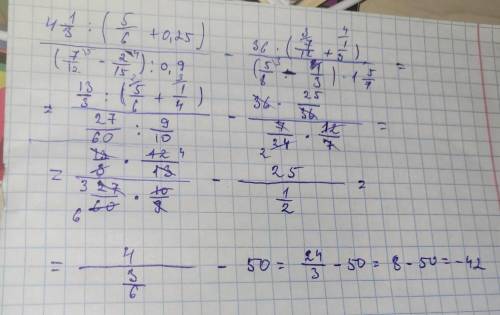 4 1/3 : (5/6 + 0,25) / (7/12 - 2/15) : 0,9 - 36 : (7/ + 1/5) / (5/8 - /3) · 1 5/7 =
= 13/3 : (5/6 + 1/4) / 27/60 : 9/10 - 36 · 25/36 / 7/24 · 12/7 =
= 13/3 · 12/13 / 27/60 · 10/9 - 25 / 1/2 =
= 4 / 3/6 - 50 = 24/3 - 50 = 8 - 50 = -42